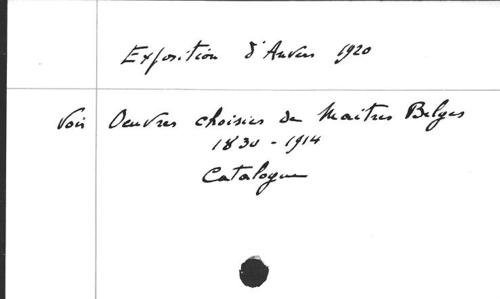 Exposition d'Anvers 1920
Voir Oeuvres choisies de Maitres Belges
1830 - 1914
Catalogue